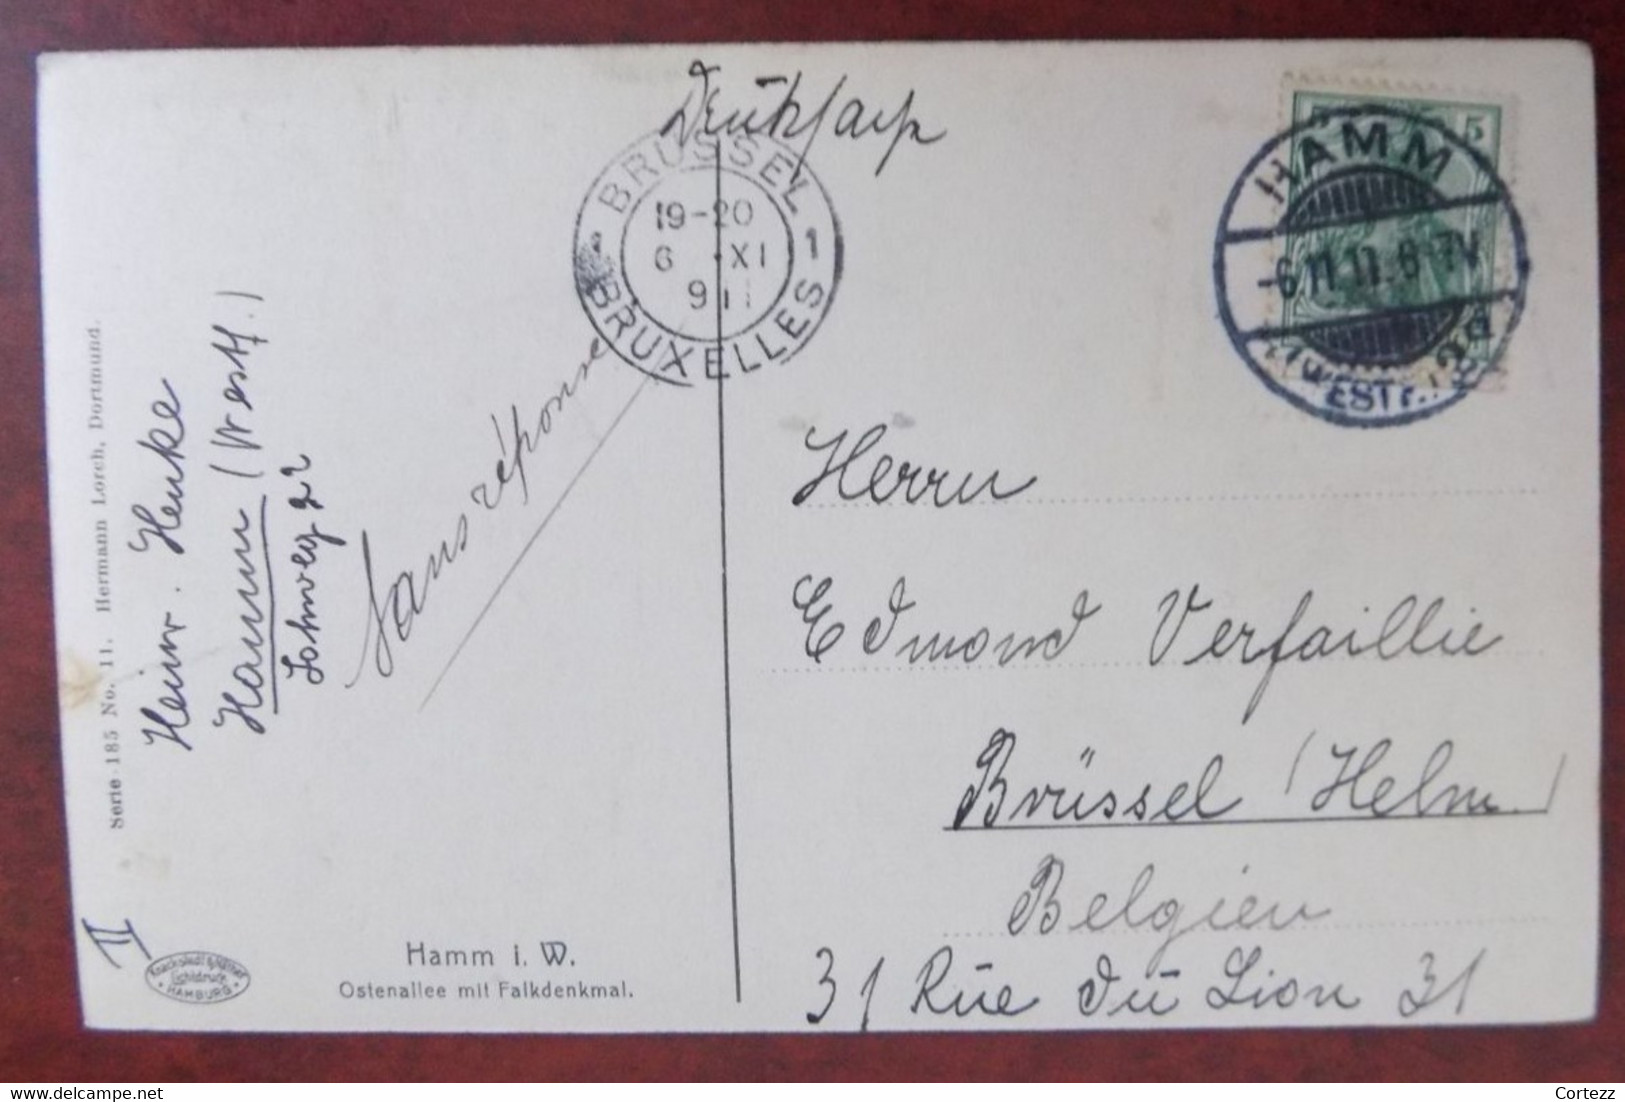 Serie 185 No. 11. Hermann Lorch, Dortmund.
Heinr. Henke
Hamm (Westf.)
Lohweg 22
Sans réponse
II
HAMBURG
Hamm i. W.
Ostenallee mit Falkdenkmal.
BRÜSSEL 1
19-20
6 XI
911
BRUXELLES
5 5
HAMM
-6.11.11.6-7V.
(WESTF.)
Herrn
Edmond Verfaillie
Brüssel (Helm.)
Belgien
31 Rue du Lion 31
Cortezz